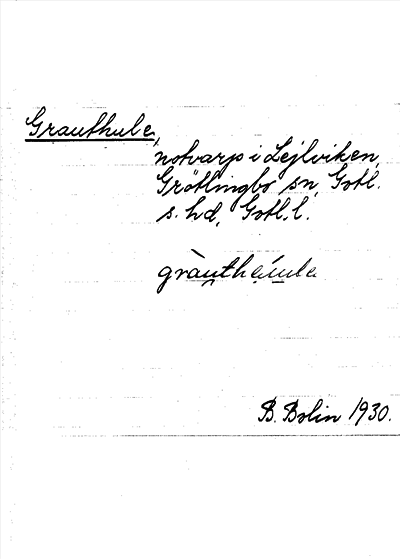 Grauthule,
notvarp i Lejlviken,
Grötlingbo sn, Gotl.
s. hd, Gotl. l.
gràu̯théu̯la
B. Bolin 1930.